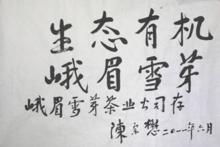 生态有机
峨眉雪芽
峨眉雪芽茶业公司存
陈宗懋二〇一一年六月